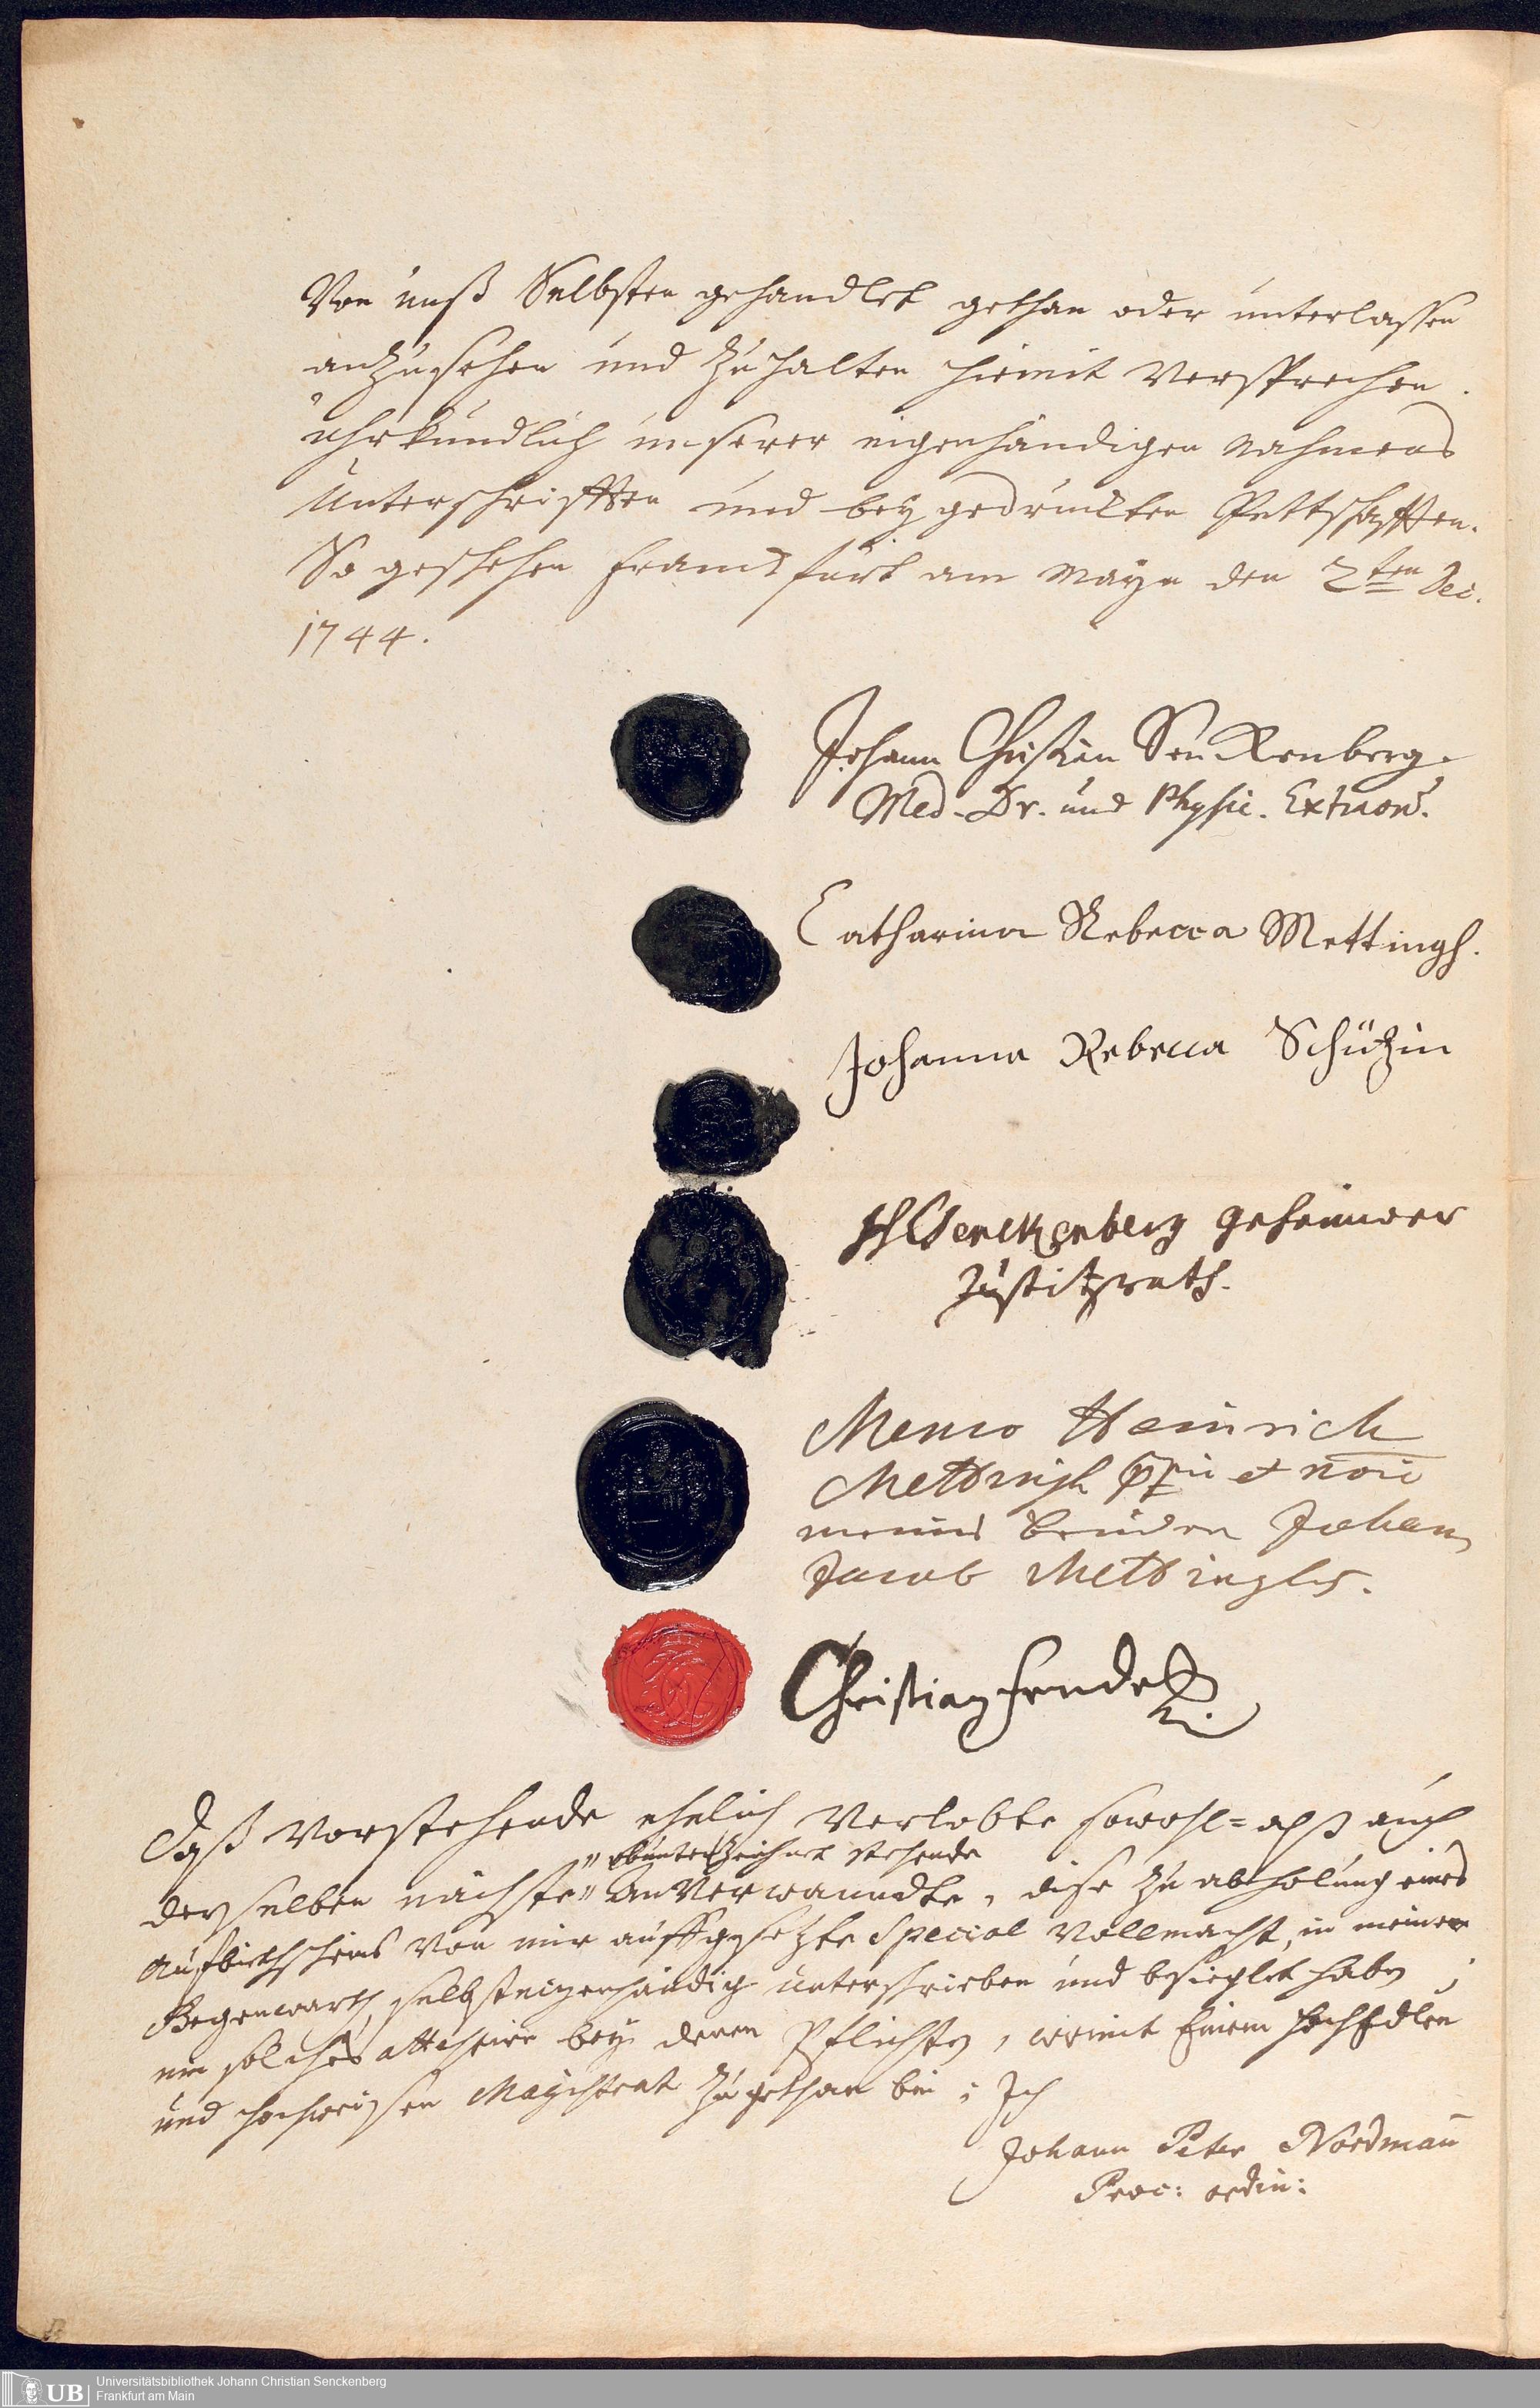 Von unß Selbsten gehandlet gethan oder unterlassen
anzusehen und zu halten hiemit Versprechen.
uhrkundlich unserer eigenhändigen nahmens
Unterschrifften und bey gedruckten Pettschafften.
So geschehen Franckfurt am Mayn den 2ten Dec.
1744.
Johann Christian Senckenberg.
Med. Dr. und Physic. Extraord.
Catharina Rebecca Mettingh.
Johanna Rebecca Schützin
Senckenberg geheimder
Justitzrath.
Menco Heinrich
Mettingh et noie
meines bruders Johan
Jacob Mettinghs.
Christian Fende
Daß Vorstehende ehelich Verlobte sowohl=alß auch
derselben nächste " anverwanndte, diese zu abholung eines
" stehende
auffbiethscheins Von mir auffgesetzte Special Vollmacht, in meiner
Gegenwarth, selbsteigenhändig unterschrieben und besieglet haben;
ein solches attestire bey denen Pflichten, womit Einem HochEdlen
und Hochweisen Magistrat zugethan bin; Ich
Johann Peter Nordmann
Proc: ordin:
UB Universitätsbibliothek Johann Christian Senckenberg
Frankfurt am Main